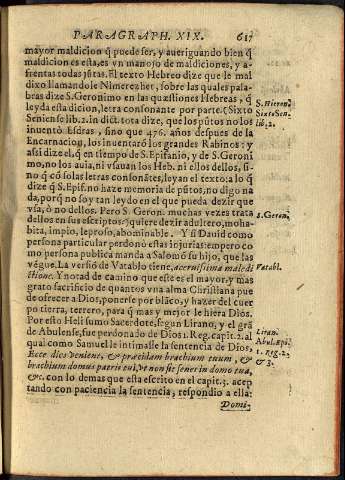 PARAGRAPH. XIX. 617
mayor maldicion q̃ puede ser, y aueriguando bien q̃
maldiciones esta, es vn manojo de maldiciones, y a-
frentas todas jũtas. El texto Hebreo dize que le mal
dixo llamandole Nimerezhet, sobre las quales pala-
bras dize S. Geronimo en las quæstiones Hebreas, q̃
S. Hieron.
leyda esta dicion, letra consonante por parte. (Sixto
Sixto Sen.
Seniense lib. 2. in dict. tota dize, que los pũtos no los
lib. 2.
inuentò Esdras, sino que 476. años despues de la
Encarnacion, los inuentarõ los grandes Rabinos: y
assi dize el, q̃ en tiempo de S. Epifanio, y de S. Geroni
mo, no los auia, ni vsauan los Heb. ni ellos dellos, si-
no q̃ cõ solas letras consonãtes, leyan el texto: a lo q̃
dize q̃ S. Epif. no haze memoria de pũtos, no digo na
da, porq̃ no soy tan leydo en el que pueda dezir que
vsa, ò no dellos. Pero S. Geron. muchas vezes trata
S. Geron.
dellos en sus escriptos: quiere dezir adultero, moha-
bita, impio, leproso, abominable. Y si Dauid como
persona particular perdonò estas injurias: empero co
mo persona publica manda a Salomõ su hijo, que las
vẽgue. La versiõ de Vatablo tiene, acerrissima maledi
Vatabl.
ctione. Y notad de camino que este es el mayor, y mas
grato sacrificio de quantos vna alma Christiana pue
de ofrecer a Dios, ponerse por blãco, y hazer del cuer
po tierra, terrero, para q̃ mas y mejor le hiera Dios.
Por esto Heli sumo Sacerdote, segun Lirano, y el grã
Liran.
de Abulense, fue perdonado de Dios 1. Reg. capit. 2. al
Abul. Epi.
qual como Samuel le intimasse la sentencia de Dios,
1. reg. 2.
Ecce dies veniunt, & præcidam brachium tuum, &
& 3.
brachium domus patris tui, vt non sit senex in domo tua,
&c. con lo demas que esta escrito en el capit. 3. acep
tando con paciencia la sentencia, respondio a ella:
Domi-